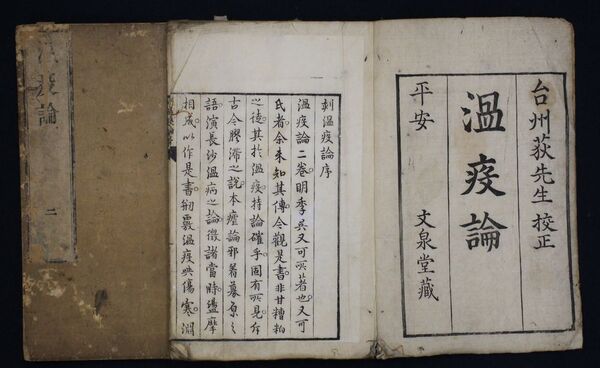 台州荻先生 校正
溫疫論
平安 文泉堂藏
刻溫疫論序
溫疫論二卷明季吳又可所著也又可
氏者余未知其傳今觀是書非甘糟粕
之徒其於溫疫持論確乎固有所見斥
古今膠滯之說本瘧論邪着募原之
語演長沙溫病之論徵諸當時盪摩
相成以作是書剏覈溫疫與傷寒淵
溫疫論 二